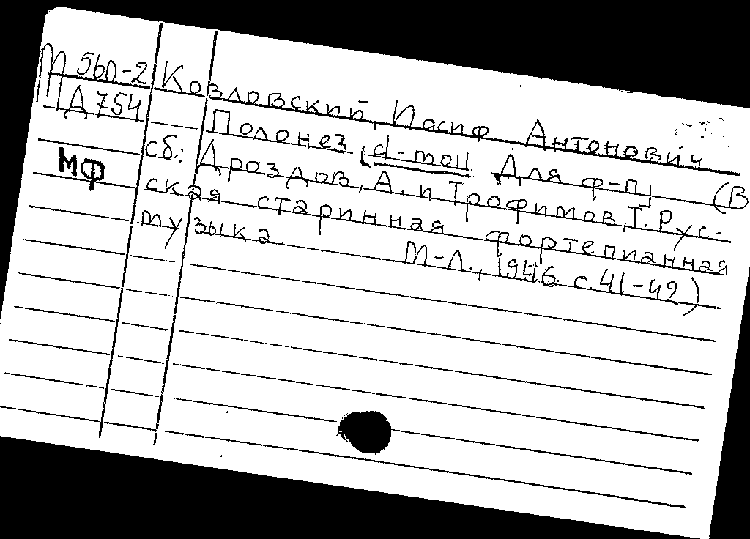 М 5бп-2 Козловский, Иосиф Антонович
Д 754 Полонез [d-moll Для ф-п] (В
МФ сб: Дроздов, А. и Трофимов, Т. Рус-
ская старинная фортепианная
музыка М-Л., 1946. с.41-42)